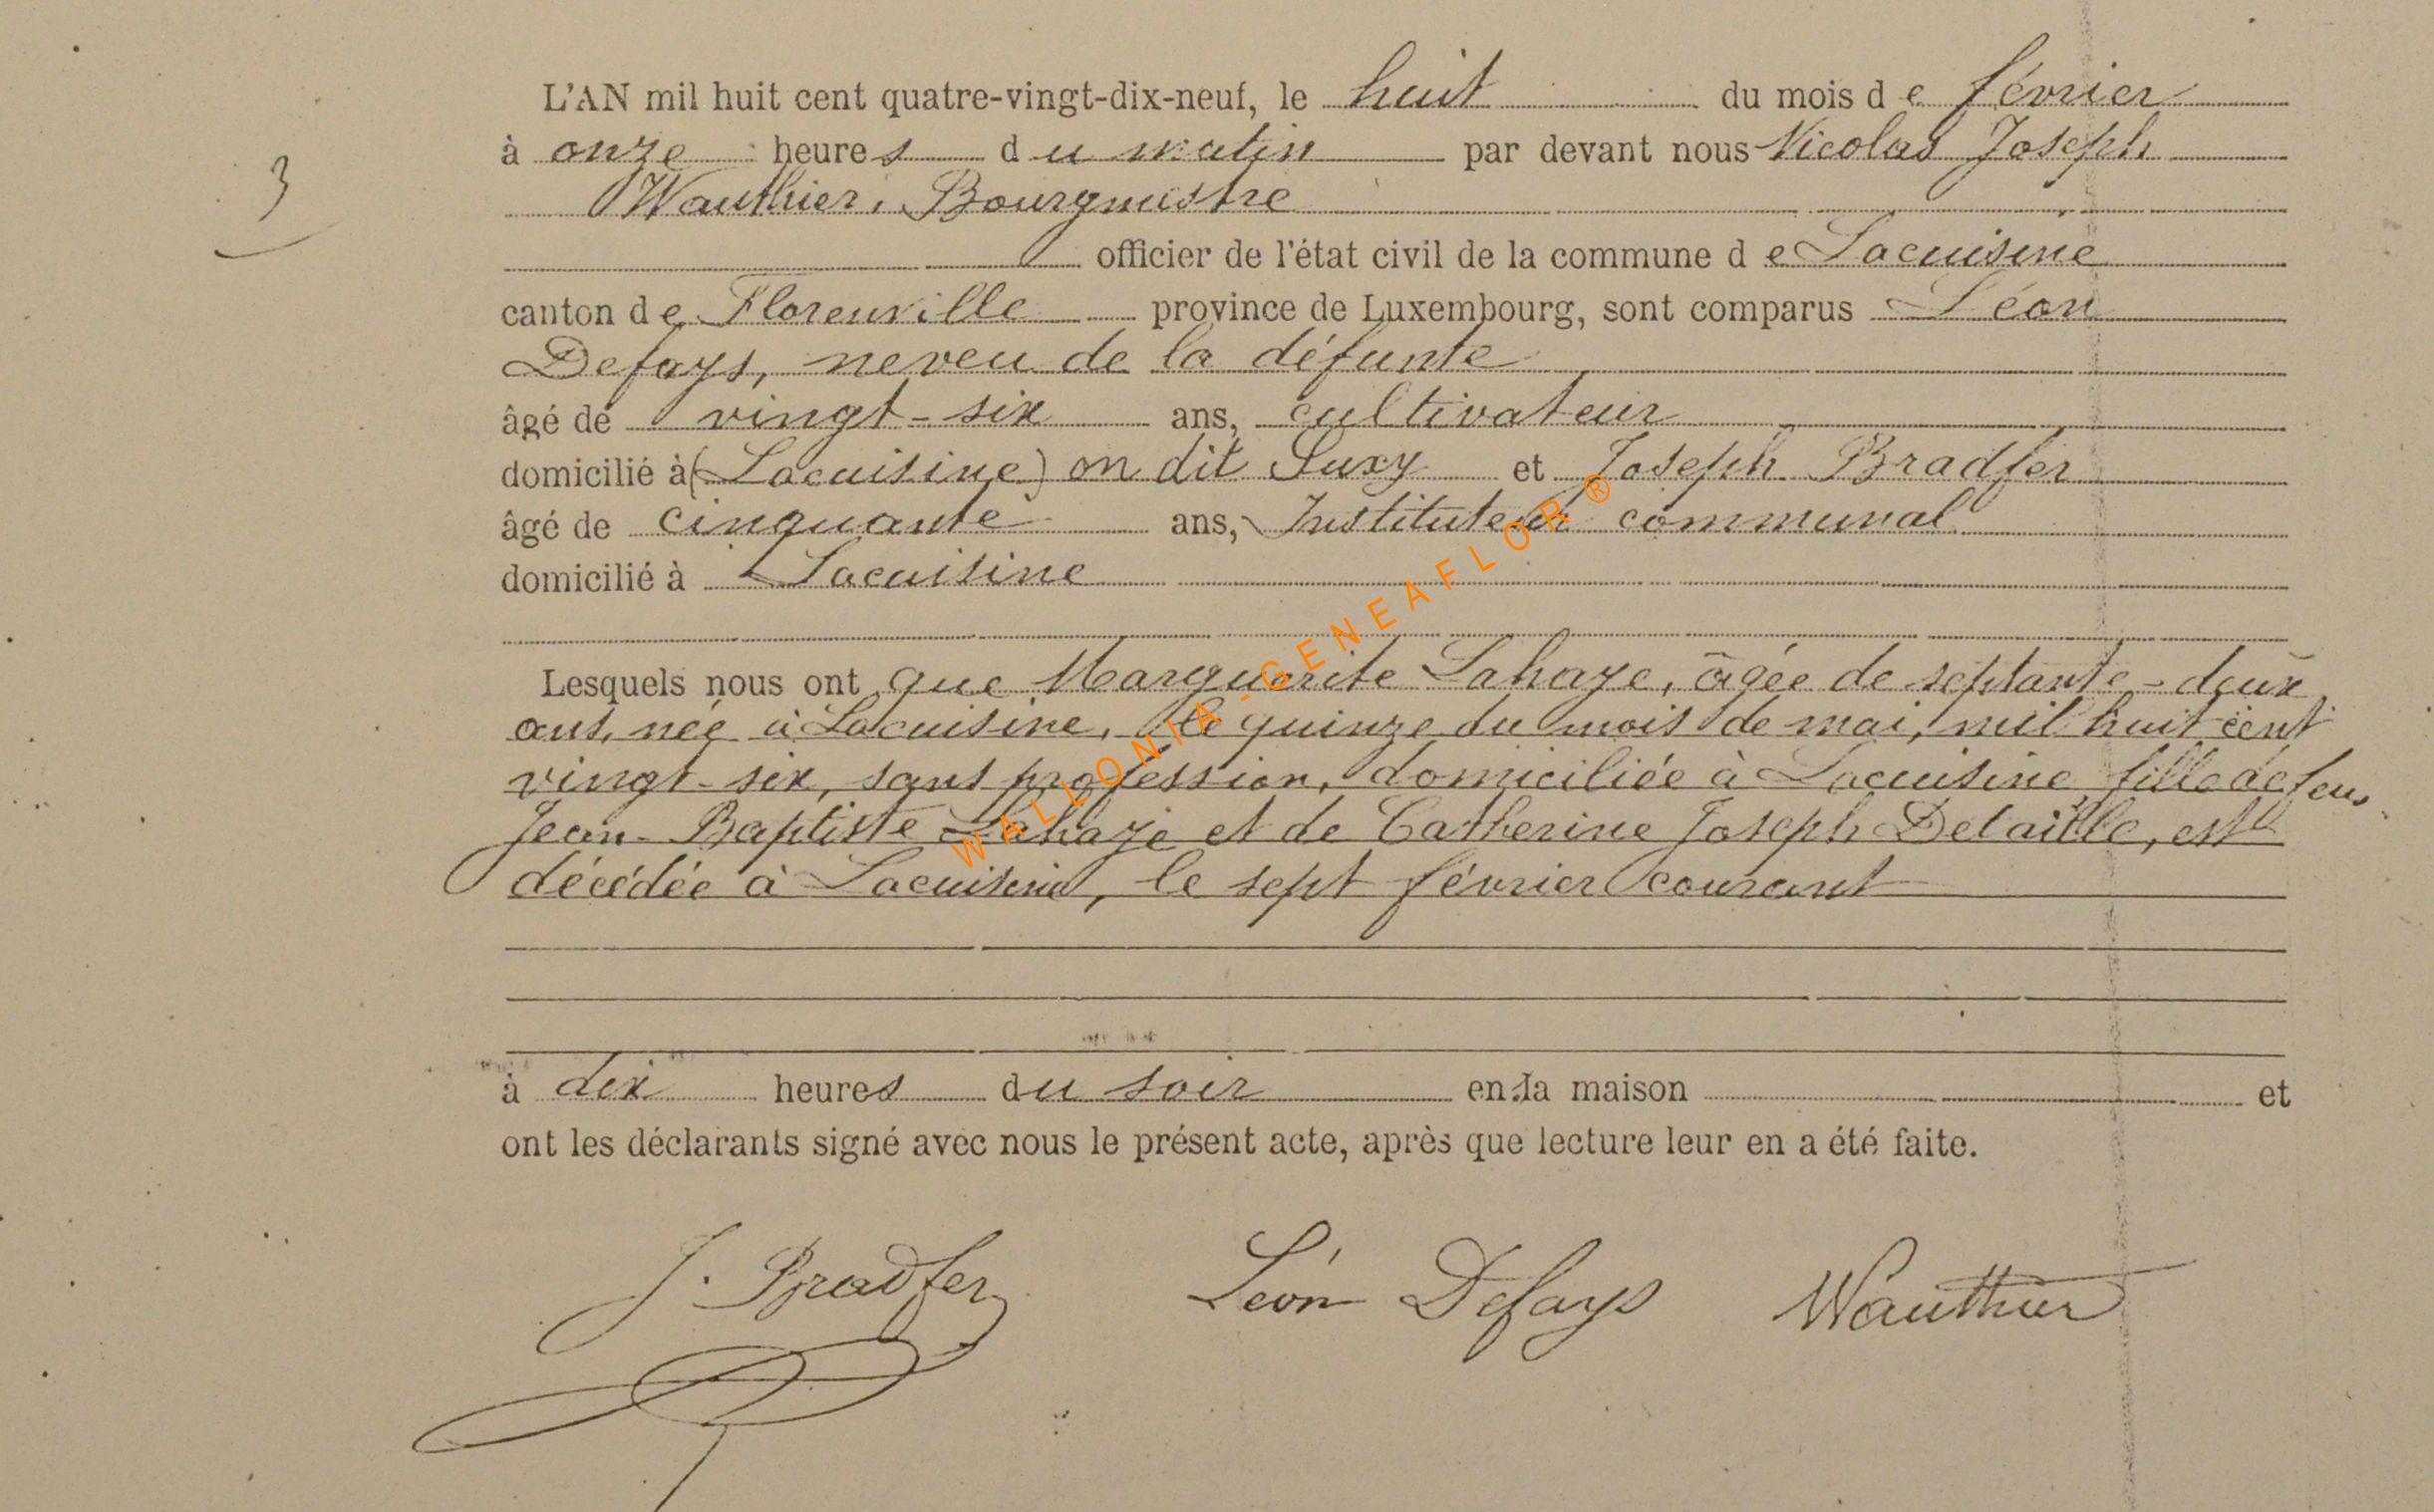 3
L'AN mil huit cent quatre-vingt-dix-neuf, le huit du mois de février
à onze heures du matin par devant nous Nicolas Joseph
Wauthier, Bourgmestre
officier de l'état civil de la commune de Lacuisine
canton de Florenville province de Luxembourg, sont comparus Léon
Defays, neveu de la défunte
âgé de vingt-six ans, cultivateur
domicilié à (Lacuisine) on dit Suxy et Joseph Bradfer
âgé de cinquante ans, Instituteur communal
domicilié à Lacuisine
Lesquels nous ont que Marguerite Lahaye, âgée de septante-deux
ans, née à Lacuisine, le quinze du mois de mai, mil huit cent
vingt-six, sans profession, domiciliée à Lacuisine fille de feu
Jean-Baptiste Lahaye et de Catherine Joseph Delaille, est
décédée à Lacuisine, le sept février courant
à dix heures du soir en la maison et
ont les déclarants signé avec nous le présent acte, après que lecture leur en a été faite.
J. Bradfer Léon Defays Wauthier
WALLONIA-GENEAFLOR ®